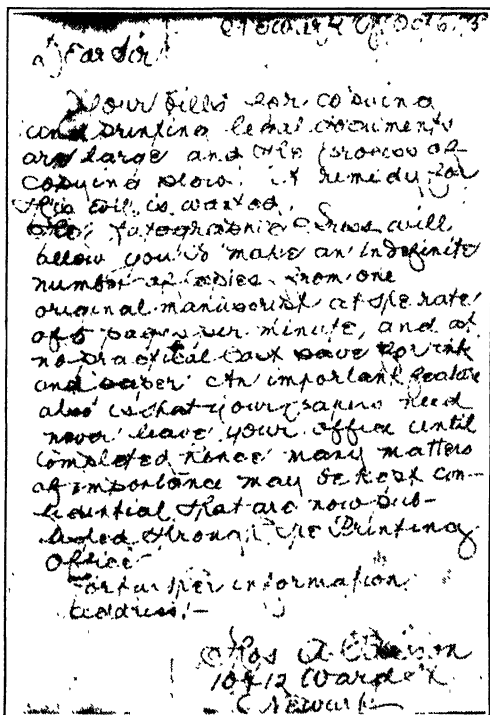 Newark Oct 6, 75
Dear Sir
Your bills for copying
and printing legal documents
are large and the process of
copying slow. A remedy for
this evil is wanted.
The Autographic Press will
allow you to make an indefinite
number of copies from one
original manuscript at the rate
of 5 pages per minute, and at
no practical cost save for ink
and paper An important feature
also is that your papers need
never leave your office until
completed hence many matters
of importance may be kept con-
fidential that are now
through the Printing
Office
For further information
address:—
Thos A Edison
10 & 12 Ward St
Newark